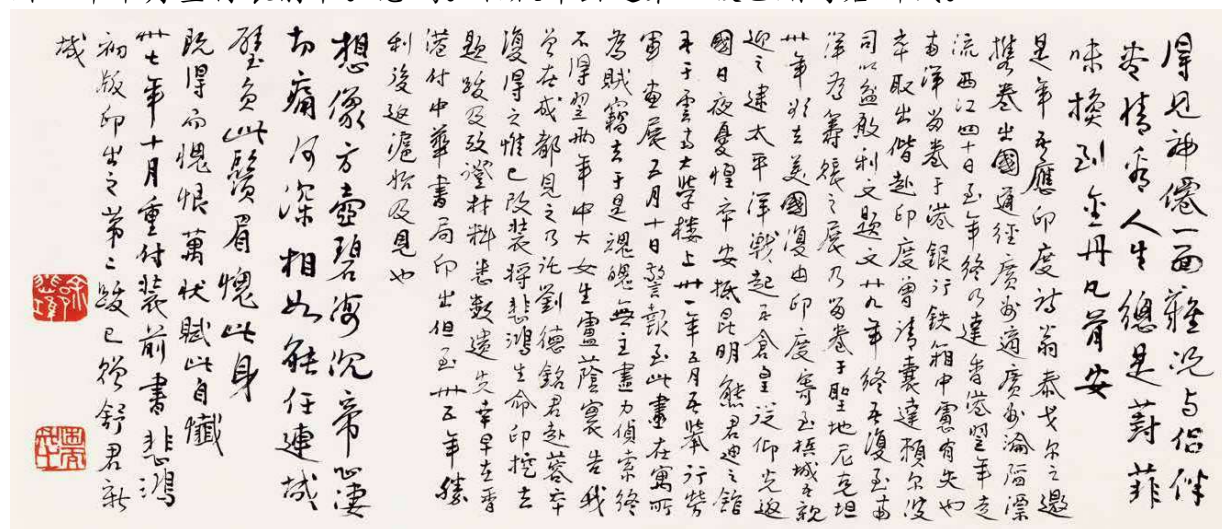 得見神僊一面難況与侣伴
盡情看人生總是葑菲
味換到金丹凡骨安
是年吾應印度詩翁泰戈尔之邀
携卷出國道經廣州適廣州淪陷漂
流西江四十日至年終乃達香港翌年走
南洋留卷于港銀行鉄箱中慮有失也
卒取出偕赴印度曾請囊達賴尔波
司以盆敢利文題文廿九年終吾復至南
洋為籌賑之展乃留卷于聖地尼克坦
卅年欲去美國復由印度寄至檳城吾親
迎之逮太平洋戰起吾倉皇從仰光返
國日夜憂惶卒安抵昆明熊君迪之館
吾于雲南大學樓上卅一年五月吾舉行勞
軍畫展五月十日警報至此畫在寓所
為賊竊去于是魂魄無主盡力偵索終
不得翌兩年中大女生盧蔭寰告我
曾在成都見之乃託劉德銘君赴蓉卒
復得之惟已改裝將悲鴻生命印挖去
題跋及攷證材料悉數遺失幸早在香
港付中華書局印出但至卅五年勝
利後返滬始及見也
想像方壺碧海沉帝心凄
切痛何深相如能任連城
璧負此鬚眉愧此身
既得而愧恨萬狀賦此自懺
卅七年十月重付裝前書 悲鴻
初版印出之第二跋已贈舒君新
城